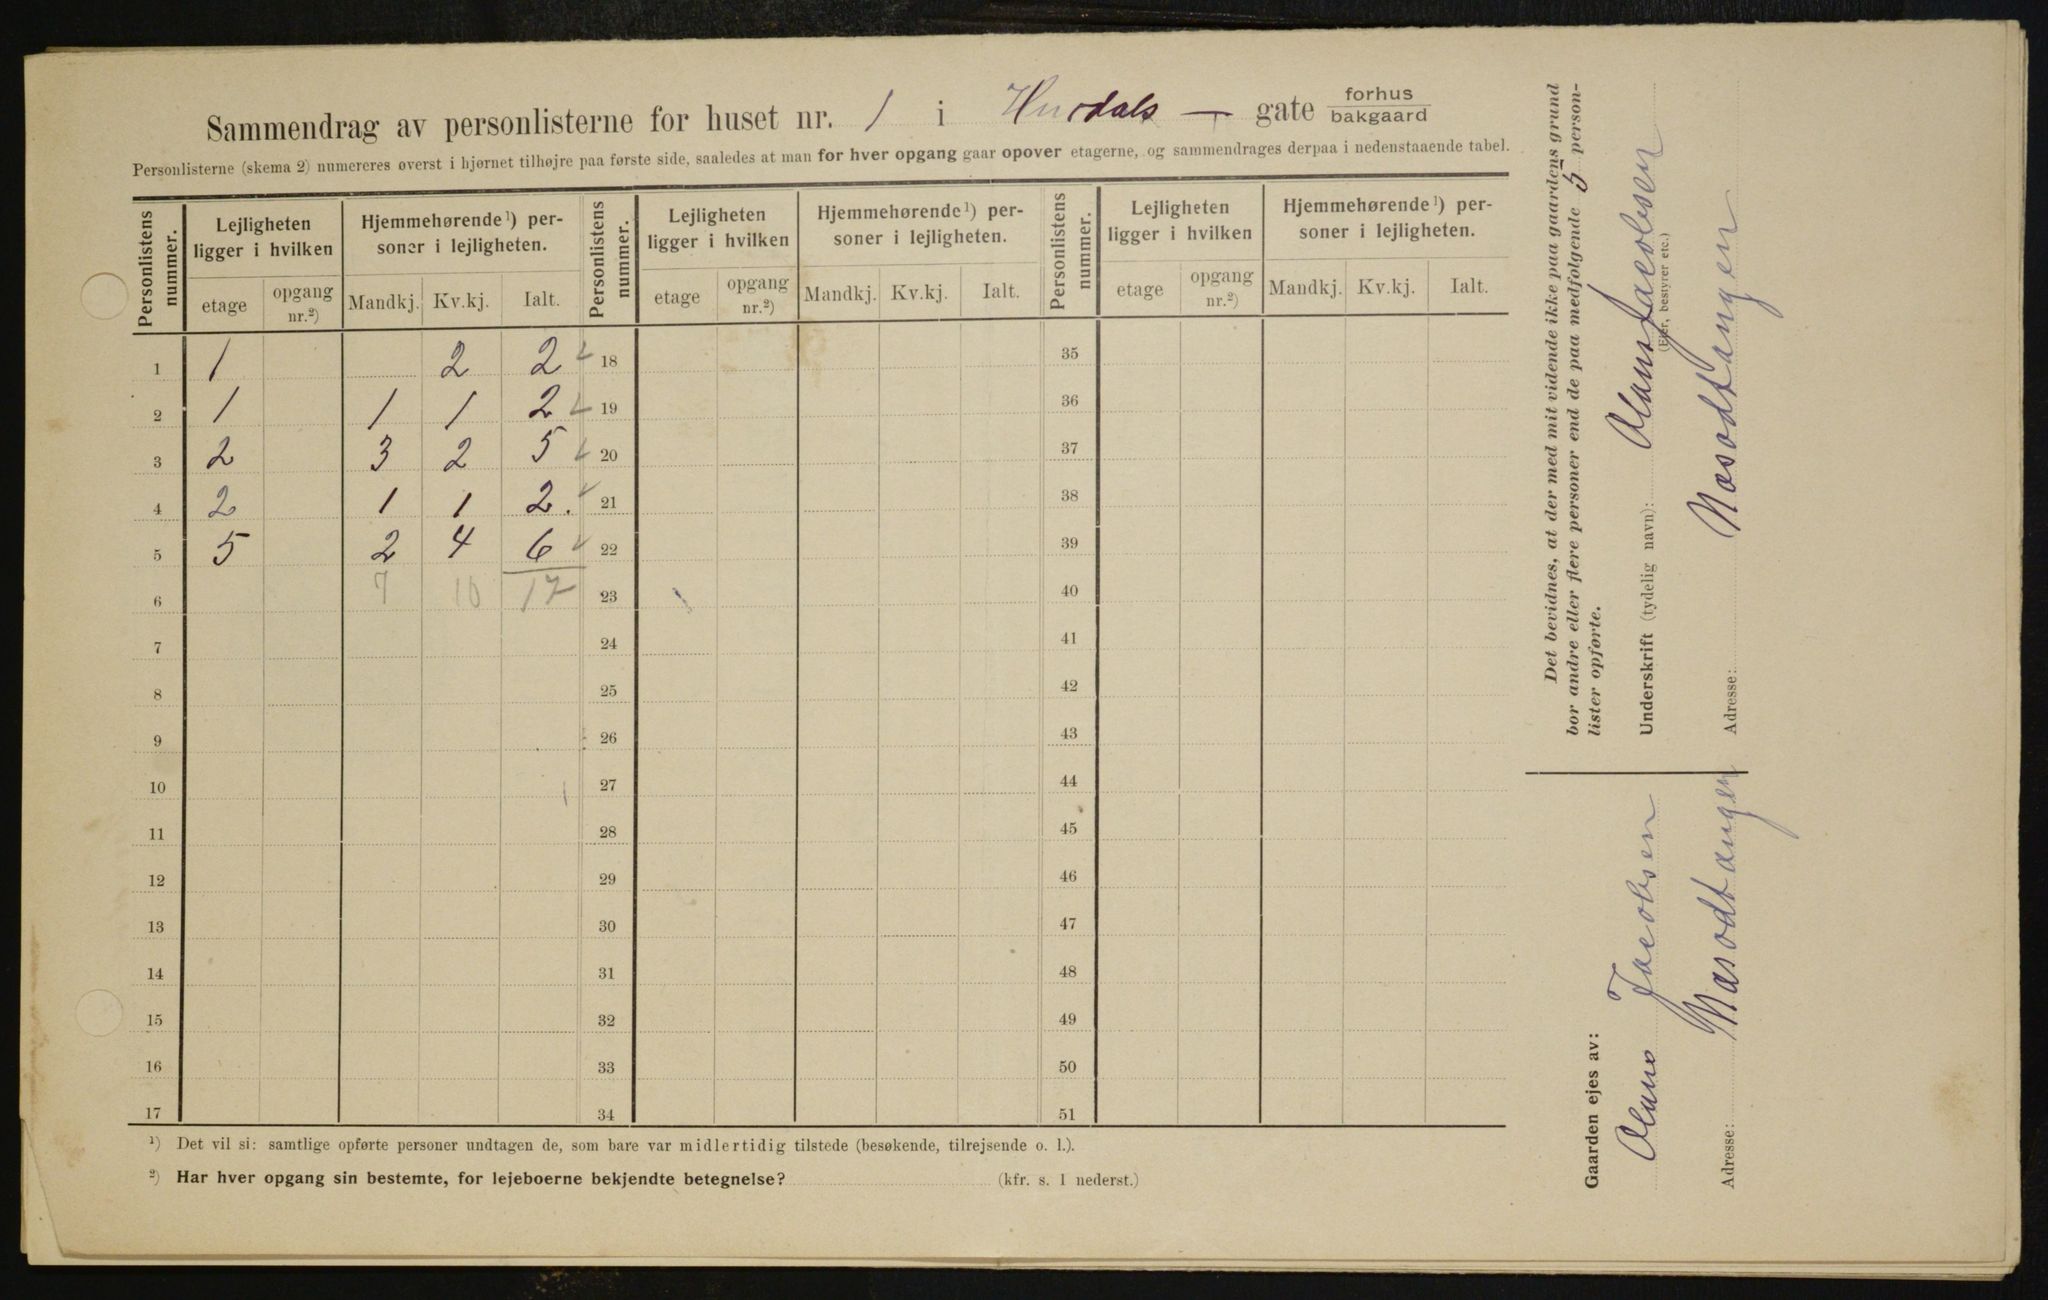 Sammendrag av personlisterne for huset nr. 1 i Hurdals — gate forhus
bakgaard
Personlisterne (skema 2) numereres øverst i hjørnet tilhøjre paa første side, saaledes at man for hver opgang gaar opover etagerne, og sammendrages derpaa i nedenstaaende tabel.
Personlistens nummer. Lejligheten ligger i hvilken Hjemmehørende¹) personer i lejligheten. Personlistens nummer. Lejligheten ligger i hvilken Hjemmehørende¹) personer i lejligheten. Personlistens nummer. Lejligheten ligger i hvilken Hjemmehørende¹) personer i lejligheten.
etage opgang nr.²) Mandkj. Kv.kj. Ialt. etage opgang nr.²) Mandkj. Kv.kj. Ialt. etage opgang nr.²) Mandkj. Kv.kj. Ialt.
1 1 2 2 18 35
2 1 1 1 2 19 36
3 2 3 2 5 20 37
4 2 1 1 2. 21 38
5 5 2 4 6 22 39
6 7 10 17 23 40
7 24 41
8 25 42
9 26 43
10 27 44
11 28 45
12 29 46
13 30 47
14 31 48
15 32 49
16 33 50
17 34 51
¹) Det vil si: samtlige opførte personer undtagen de, som bare var midlertidig tilstede (besøkende, tilrejsende o. l.).
²) Har hver opgang sin bestemte, for lejeboerne bekjendte betegnelse? (kfr. s. 1 nederst.)
Det bevidnes, at der med mit vidende ikke paa gaardens grund
bor andre eller flere personer end de paa medfølgende 5 person-
lister opførte.
Underskrift (tydelig navn): Jacobsen
(Eier, bestyrer etc.)
Adresse: Næsodtangen
Gaarden ejes av:
Jacobsen
Adresse: Næsodtangen